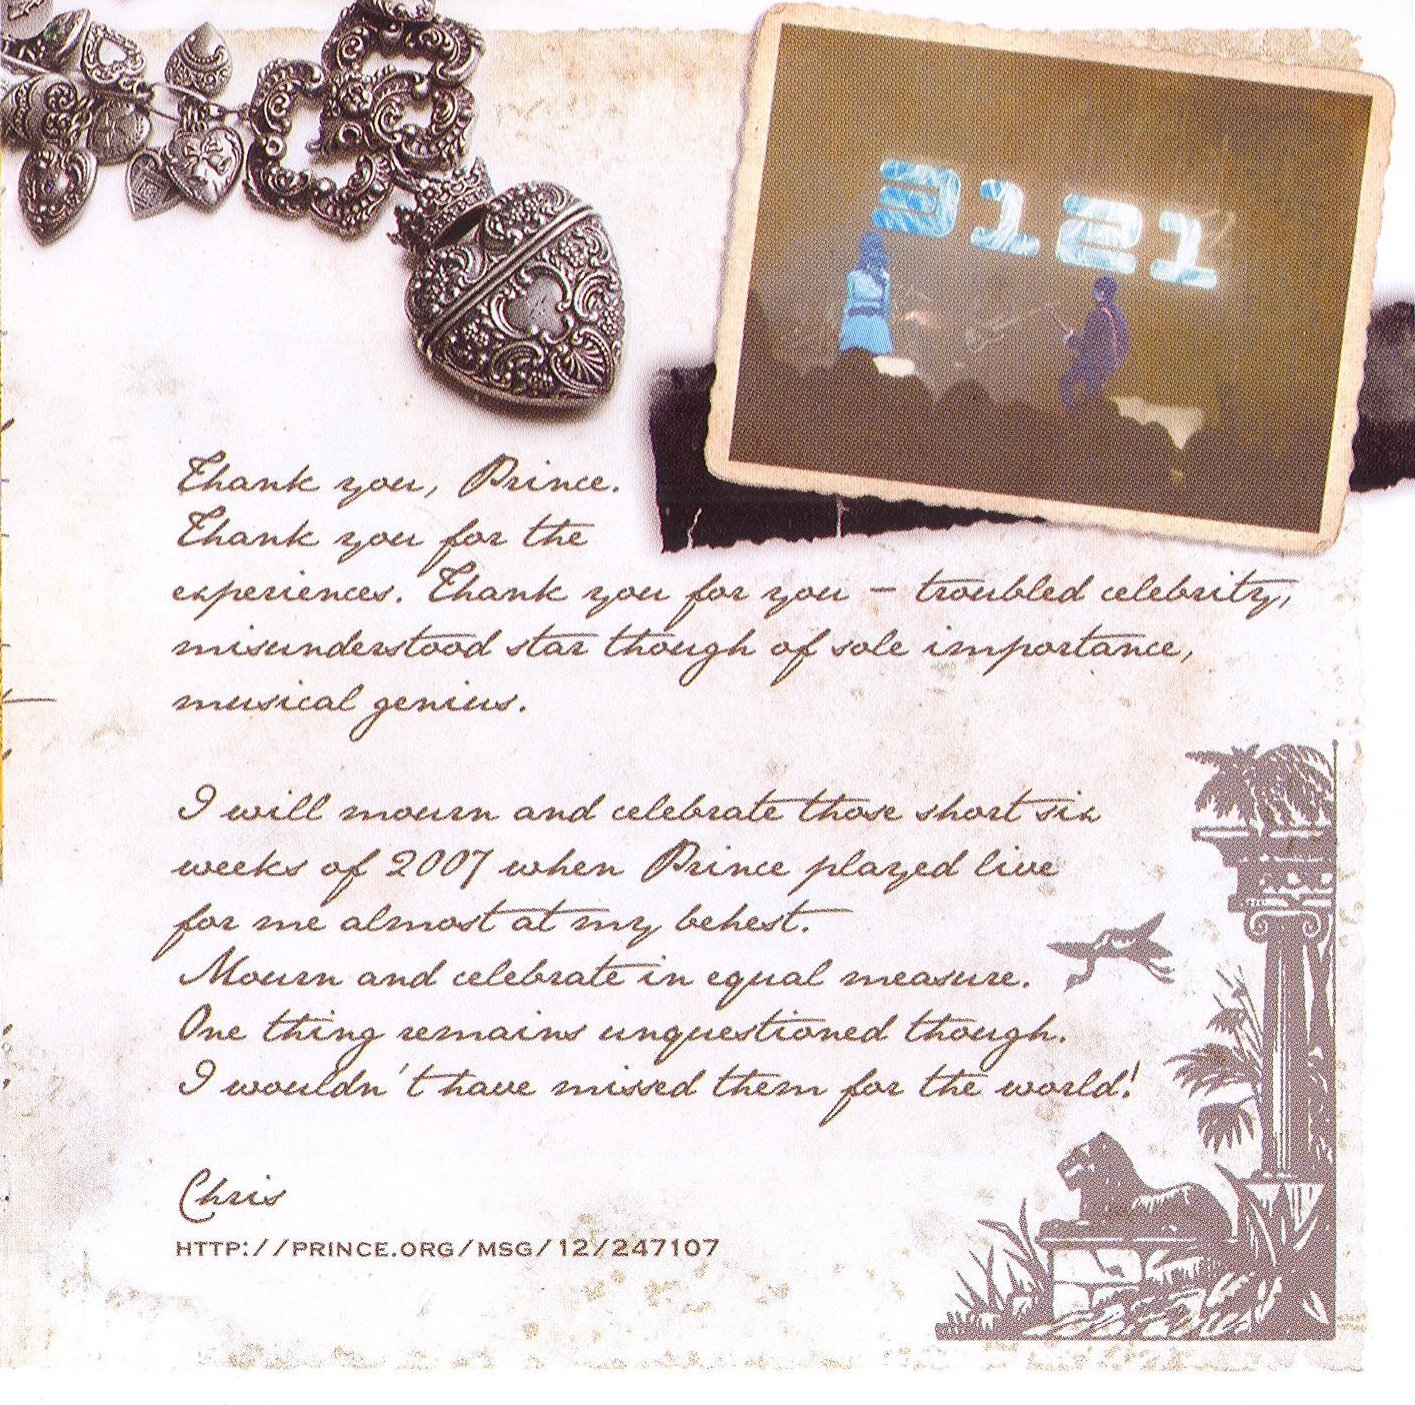 3121
Thank you, Prince.
Thank you for the
experiences. Thank you for you – troubled celebrity,
misunderstood star though of sole importance,
musical genius.
I will mourn and celebrate those short six
weeks of 2007 when Prince played live
for me almost at my behest.
Mourn and celebrate in equal measure.
One thing remains unquestioned though.
I wouldn't have missed them for the world!
Chris
HTTP://PRINCE.ORG/MSG/12/247107